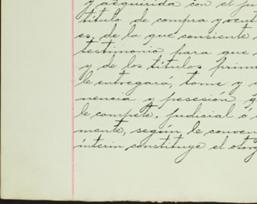 y adquirida con el ju
título de compra y vent
es, de la que consiente
testimonio para que
y de los títulos prim
le entregará, tome y
nencia y posesión q
le compete, judicial o
mente, según le conven
ínterin constituye el otorg